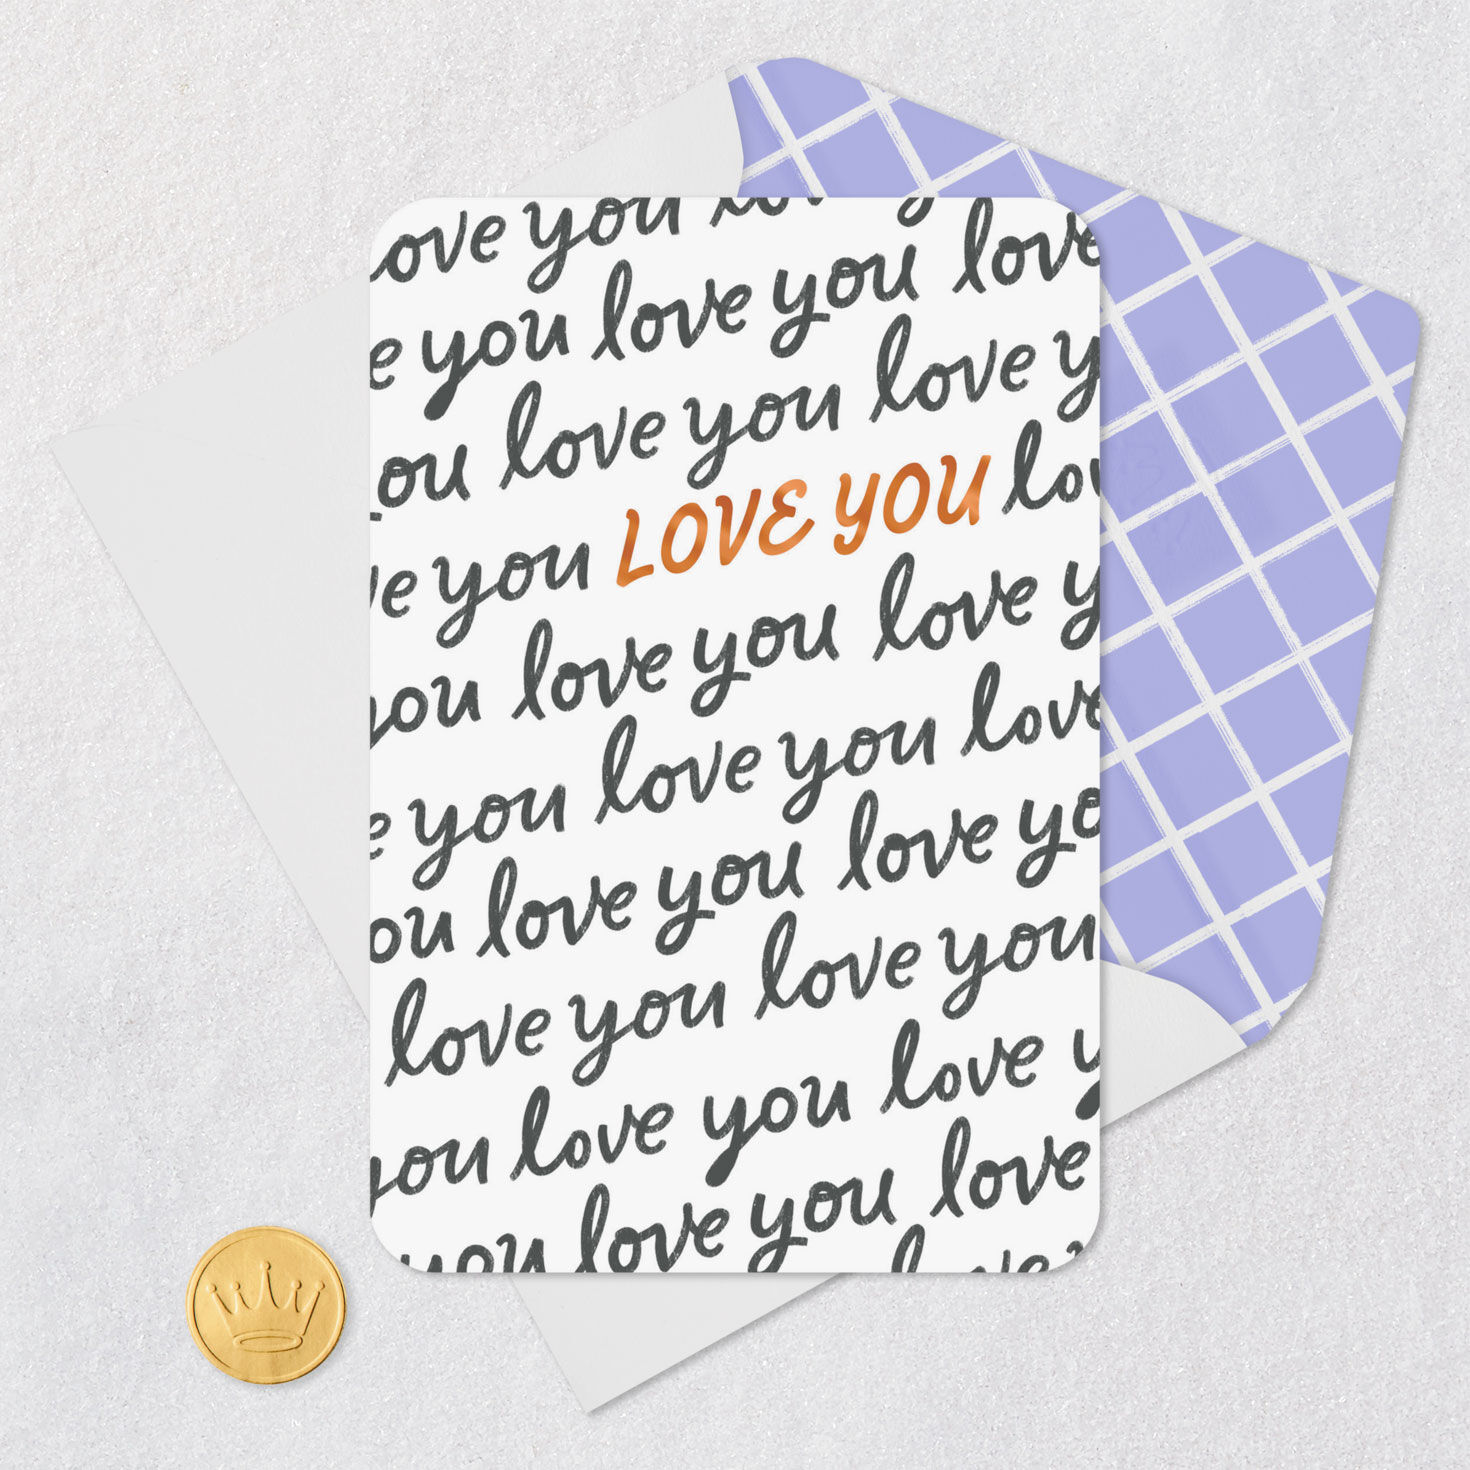 love you lov
e you love you love
ou love you love y
ve you LOVE YOU lov
you love you love y
e you love you love
ou love you love yo
love you love you
you love you love y
you love you love
love